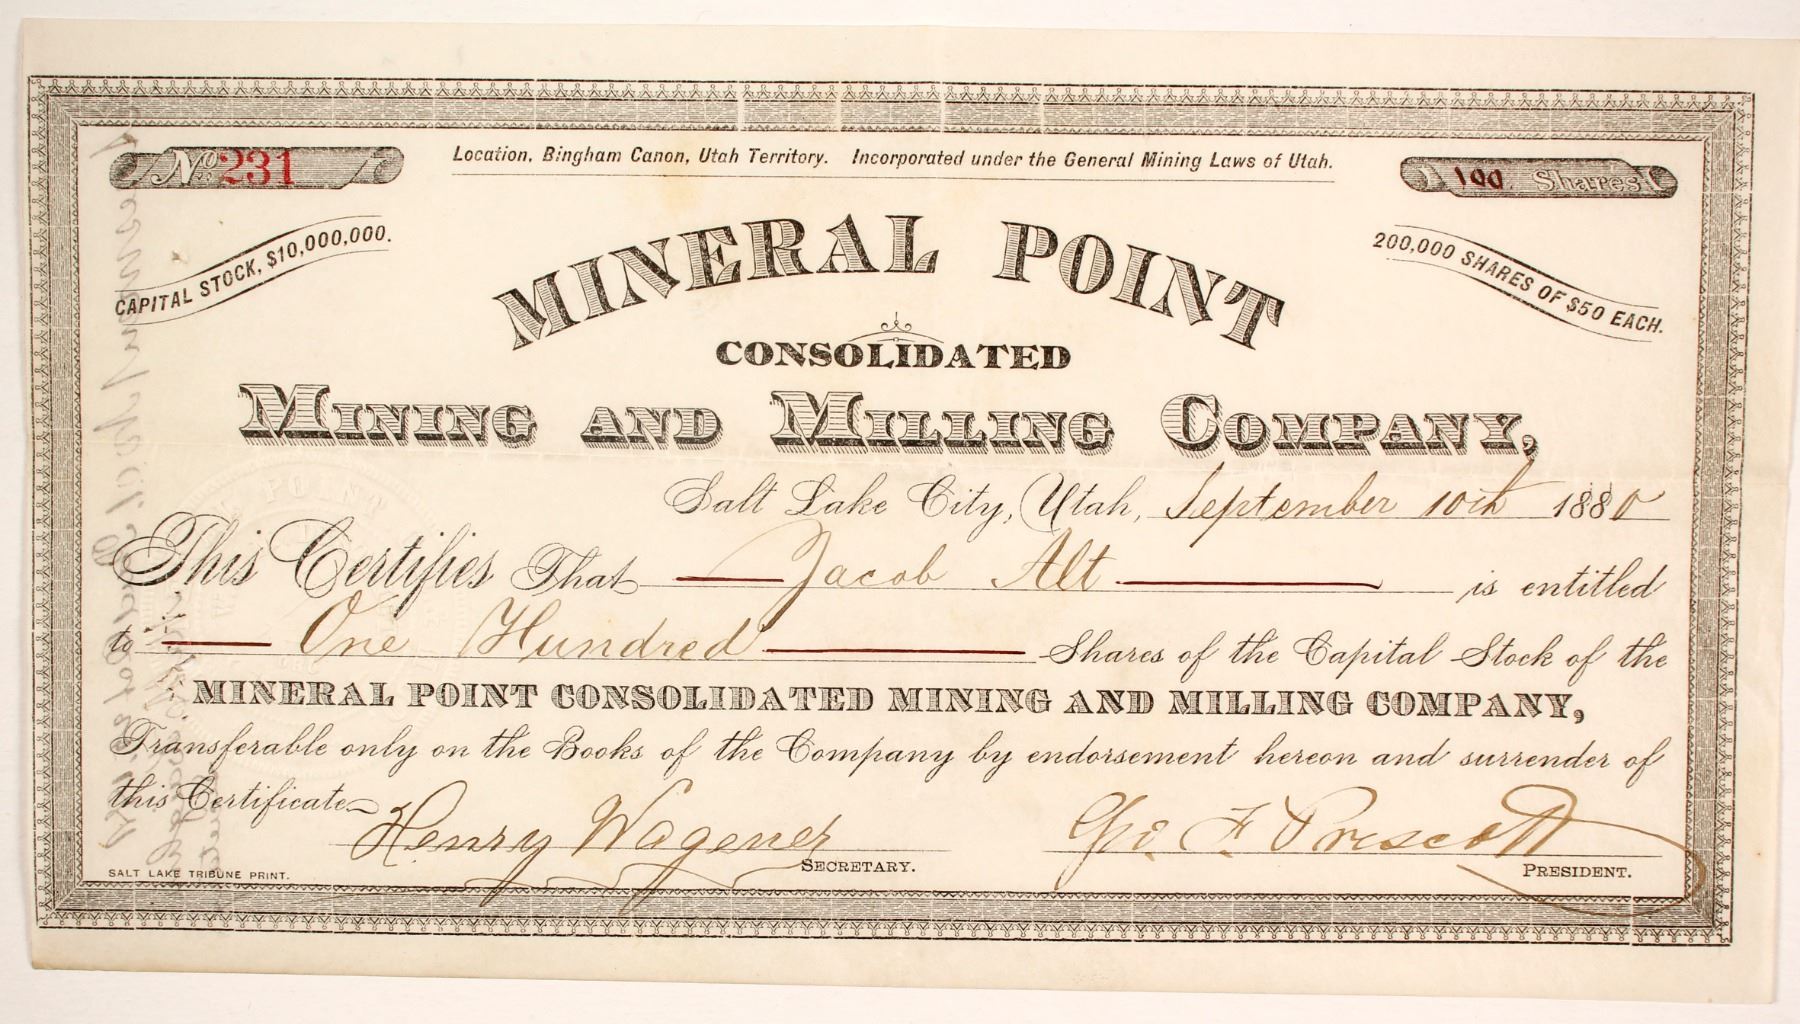 No. 231
Location, Bingham Canon, Utah Territory. Incorporated under the General Mining Laws of Utah.
100 Shares
CAPITAL STOCK, $10,000,000.
200,000 SHARES OF $50 EACH.
MINERAL POINT
CONSOLIDATED
MINING AND MILLING COMPANY,
Salt Lake City, Utah, September 10th 1880
This Certifies That Jacob Alt is entitled
to One Hundred Shares of the Capital Stock of the
MINERAL POINT CONSOLIDATED MINING AND MILLING COMPANY,
Transferable only on the Books of the Company by endorsement hereon and surrender of
this Certificate
Henry Wagener
SECRETARY.
Geo. F. Prescott
PRESIDENT.
SALT LAKE TRIBUNE PRINT.
POINT